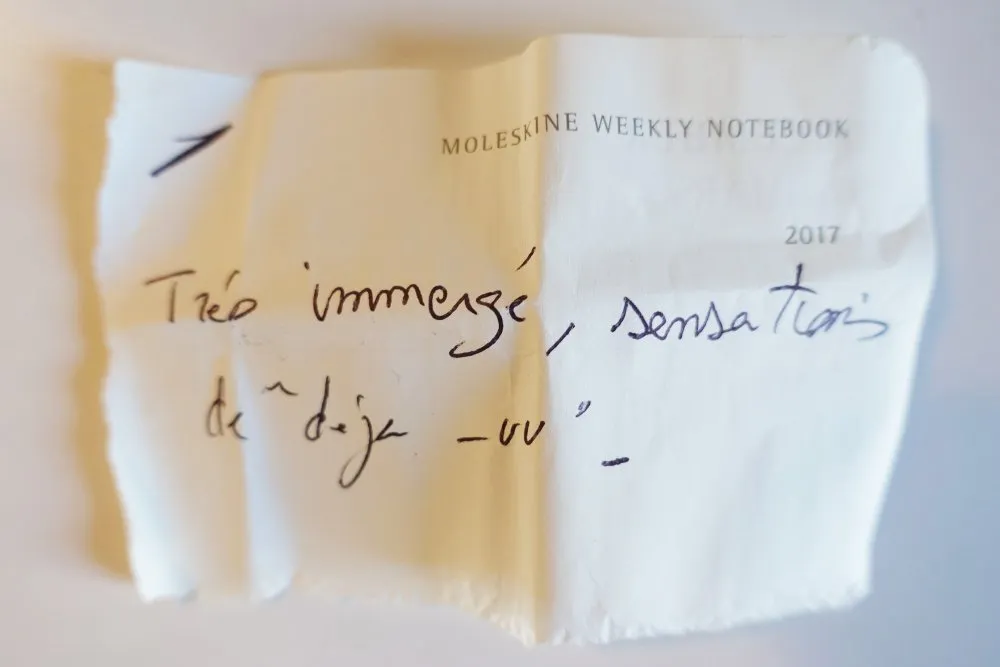 MOLESKINE WEEKLY NOTEBOOK
2017
Trés immergé, sensations
de "déja -vu"_